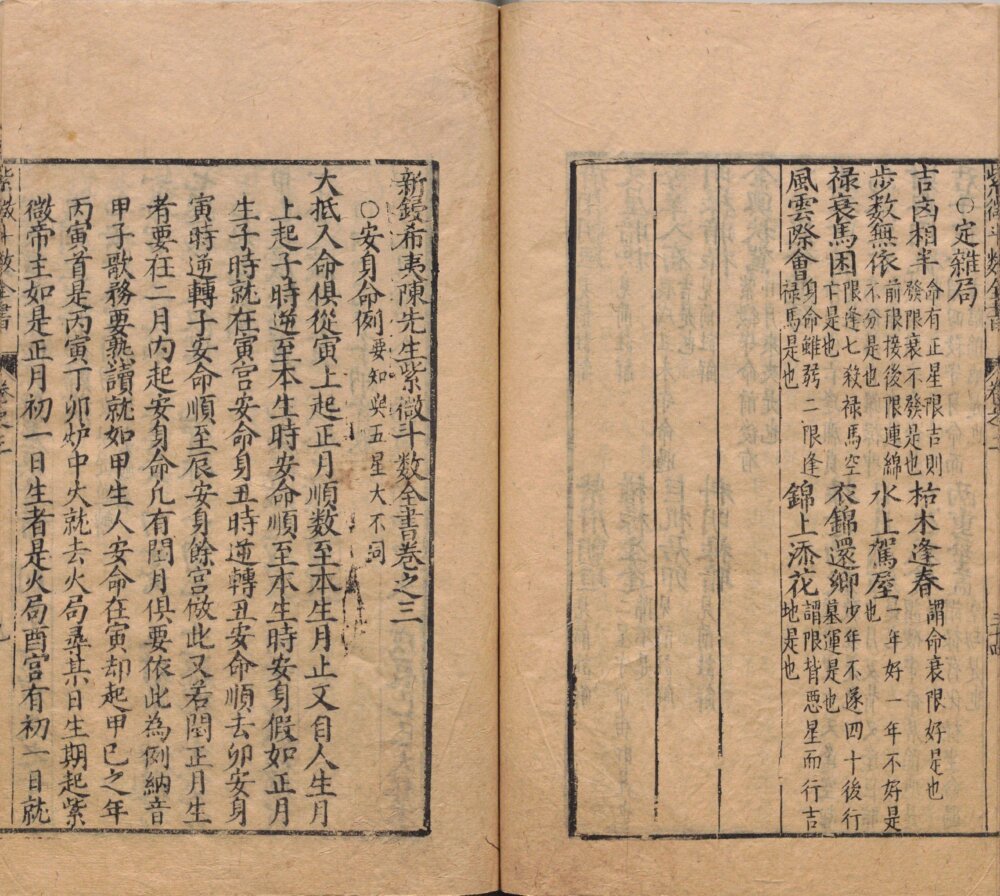 紫微斗數全書 卷之二
○定雜局
吉凶相半 命有正星限吉則發限衰不發是也 枯木逢春 謂命衰限好是也
步数無依 前限接後限連綿不分是也 水上駕屋 一年好一年不好是也
禄衰馬困 限逢七殺禄馬空亡是也 衣錦還鄉 少年不遂四十後行墓運是也
風雲際會 身命雖弱二限逢禄馬是也 錦上添花 謂限皆惡星而行吉地是也
新鋟希夷陳先生紫微斗数全書卷之三
○安身命例 要知與五星大不同
大抵人命俱從寅上起正月順数至本生月止又自人生月
上起子時逆至本生時安命順至本生時安身假如正月
生子時就在寅宫安命身丑時逆轉丑安命順去卯安身
寅時逆轉子安命順至辰安身餘宫倣此又若閏正月生
者要在二月内起安身命凡有閏月俱要依此為例納音
甲子歌務要熟讀就如甲生人安命在寅却起甲己之年
丙寅首是丙寅丁卯炉中火就去火局尋某日生期起紫
微帝主如是正月初一日生者是火局酉宫有初一日就
紫微斗数全書 卷之三